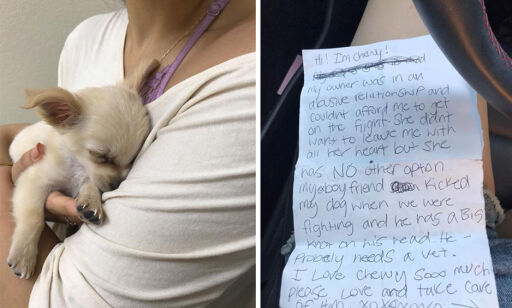 Hi! I'm chewy!
my owner was in an
abusive relationship and
couldnt afford me to get
on the flight. She didnt
want to leave me with
all her heart but she
has NO other option
my boyfriend kicked
my dog when we were
fighting and he has a Big
knot on his head. He
Probely needs a vet.
I Love chewy sooo much
please Love and take care
of him